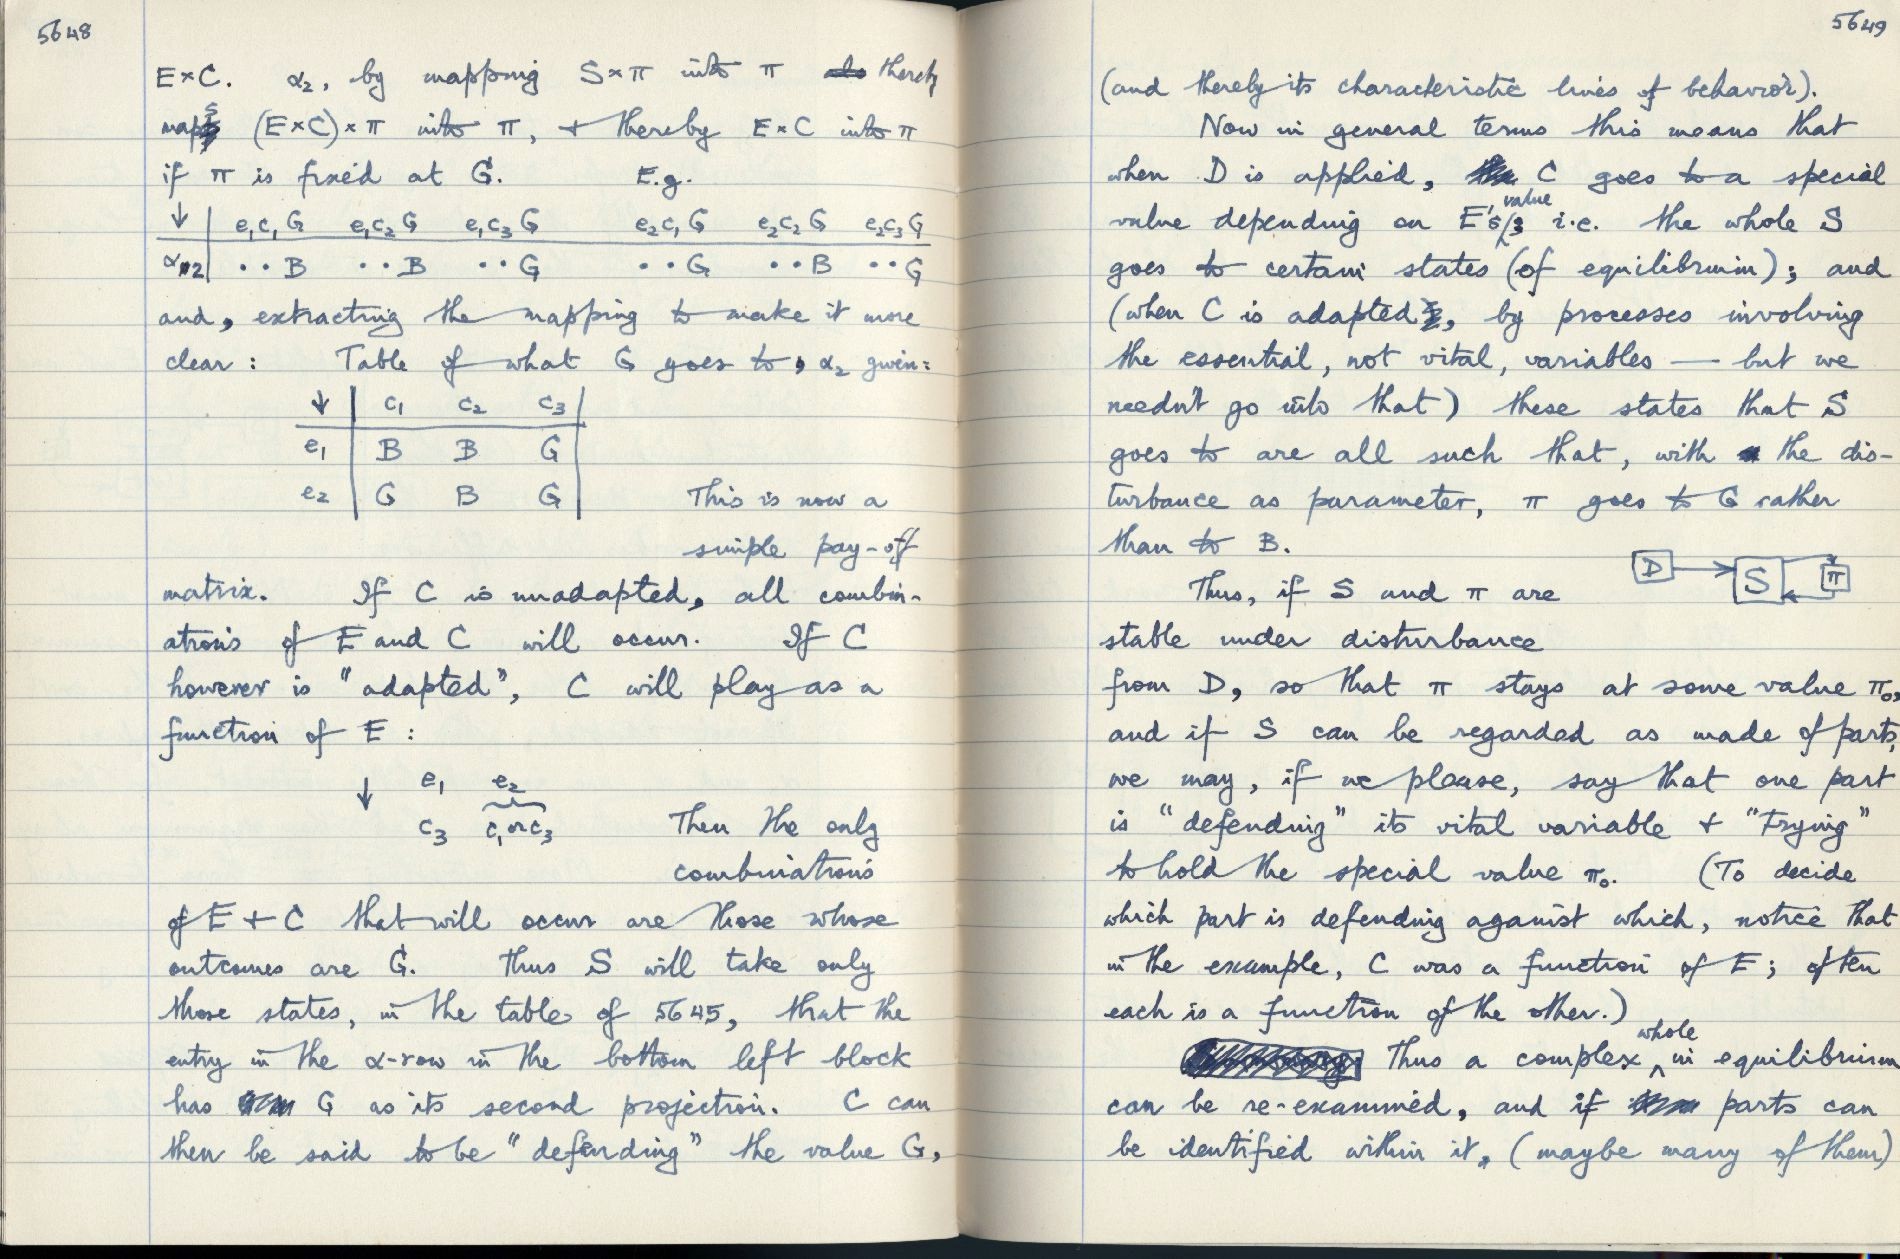 5648
E×C. α₂, by mapping S×π into π thereby
maps (E×C)×π into π, + thereby E×C into π
if π is fixed at G. E.g.
↓ e₁c₁G e₁c₂G e₁c₃G e₂c₁G e₂c₂G e₂c₃G
α₂ ··B ··B ··G ··G ··B ··G
and, extracting the mapping to make it more
clear: Table of what G goes to, α₂ given:
↓ c₁ c₂ c₃
e₁ B B G
e₂ G B G This is now a
simple pay-off
matrix. If C is unadapted, all combin-
ations of E and C will occur. If C
however is "adapted", C will play as a
function of E:
↓ e₁ e₂
c₃ c₁ or c₃ Then the only
combinations
of E + C that will occur are those whose
outcomes are G. Thus S will take only
those states, in the table of 5645, that the
entry in the α-row in the bottom left block
has G as its second projection. C can
then be said to be "defending" the value G,
5649
(and thereby its characteristic lines of behavior).
Now in general terms this means that
when D is applied, C goes to a special
value depending on E's value i.e. the whole S
goes to certain states (of equilibrium); and
(when C is adapted, by processes involving
the essential, not vital, variables — but we
needn't go into that) these states that S
goes to are all such that, with the dis-
turbance as parameter, π goes to G rather
than to B.
D S π
Thus, if S and π are
stable under disturbance
from D, so that π stays at some value π₀,
and if S can be regarded as made of parts,
we may, if we please, say that one part
is "defending" its vital variable + "trying"
to hold the special value π₀. (To decide
which part is defending against which, notice that
in the example, C was a function of E; often
each is a function of the other.)
Thus a complex whole in equilibrium
can be re-examined, and if parts can
be identified within it, (maybe many of them)